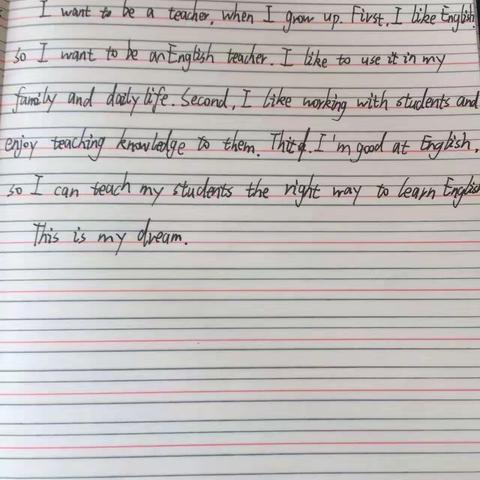 I want to be a teacher, when I grow up. First, I like English,
so I want to be an English teacher. I like to use it in my
family and daily life. Second, I like working with students and
enjoy teaching knowledge to them. Third. I'm good at English,
so I can teach my students the right way to learn English
This is my dream.